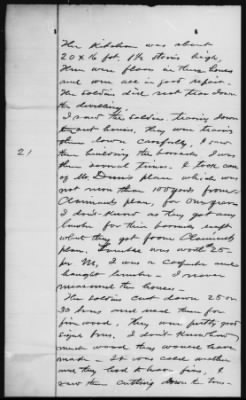 The Kitchen was about
20 x 16 feet. 1½ stories high,
There were floors in these houses
and were all in good repair.
The soldiers did not tear down
the dwelling.
I saw the soldiers tearing down
out houses, they were tearing
them down carefully, I saw
them building the barracks, I was
there several times. I took care
of Mr place which was
not more than 100 yards from
Claimants place, for one year
I don't know as they got any
lumber for their barracks except
what they got from Claimants
place. Lumber was worth 25-
per M, I was a carpenter and
bought lumber - I never
measured the houses -
The soldiers cut down 25 or
30 trees and used them for
fire wood, They were pretty good
sized trees. I don't know how
much wood they would have
made - It was cold weather
and they had to have fires, I
saw them cutting down the trees
21